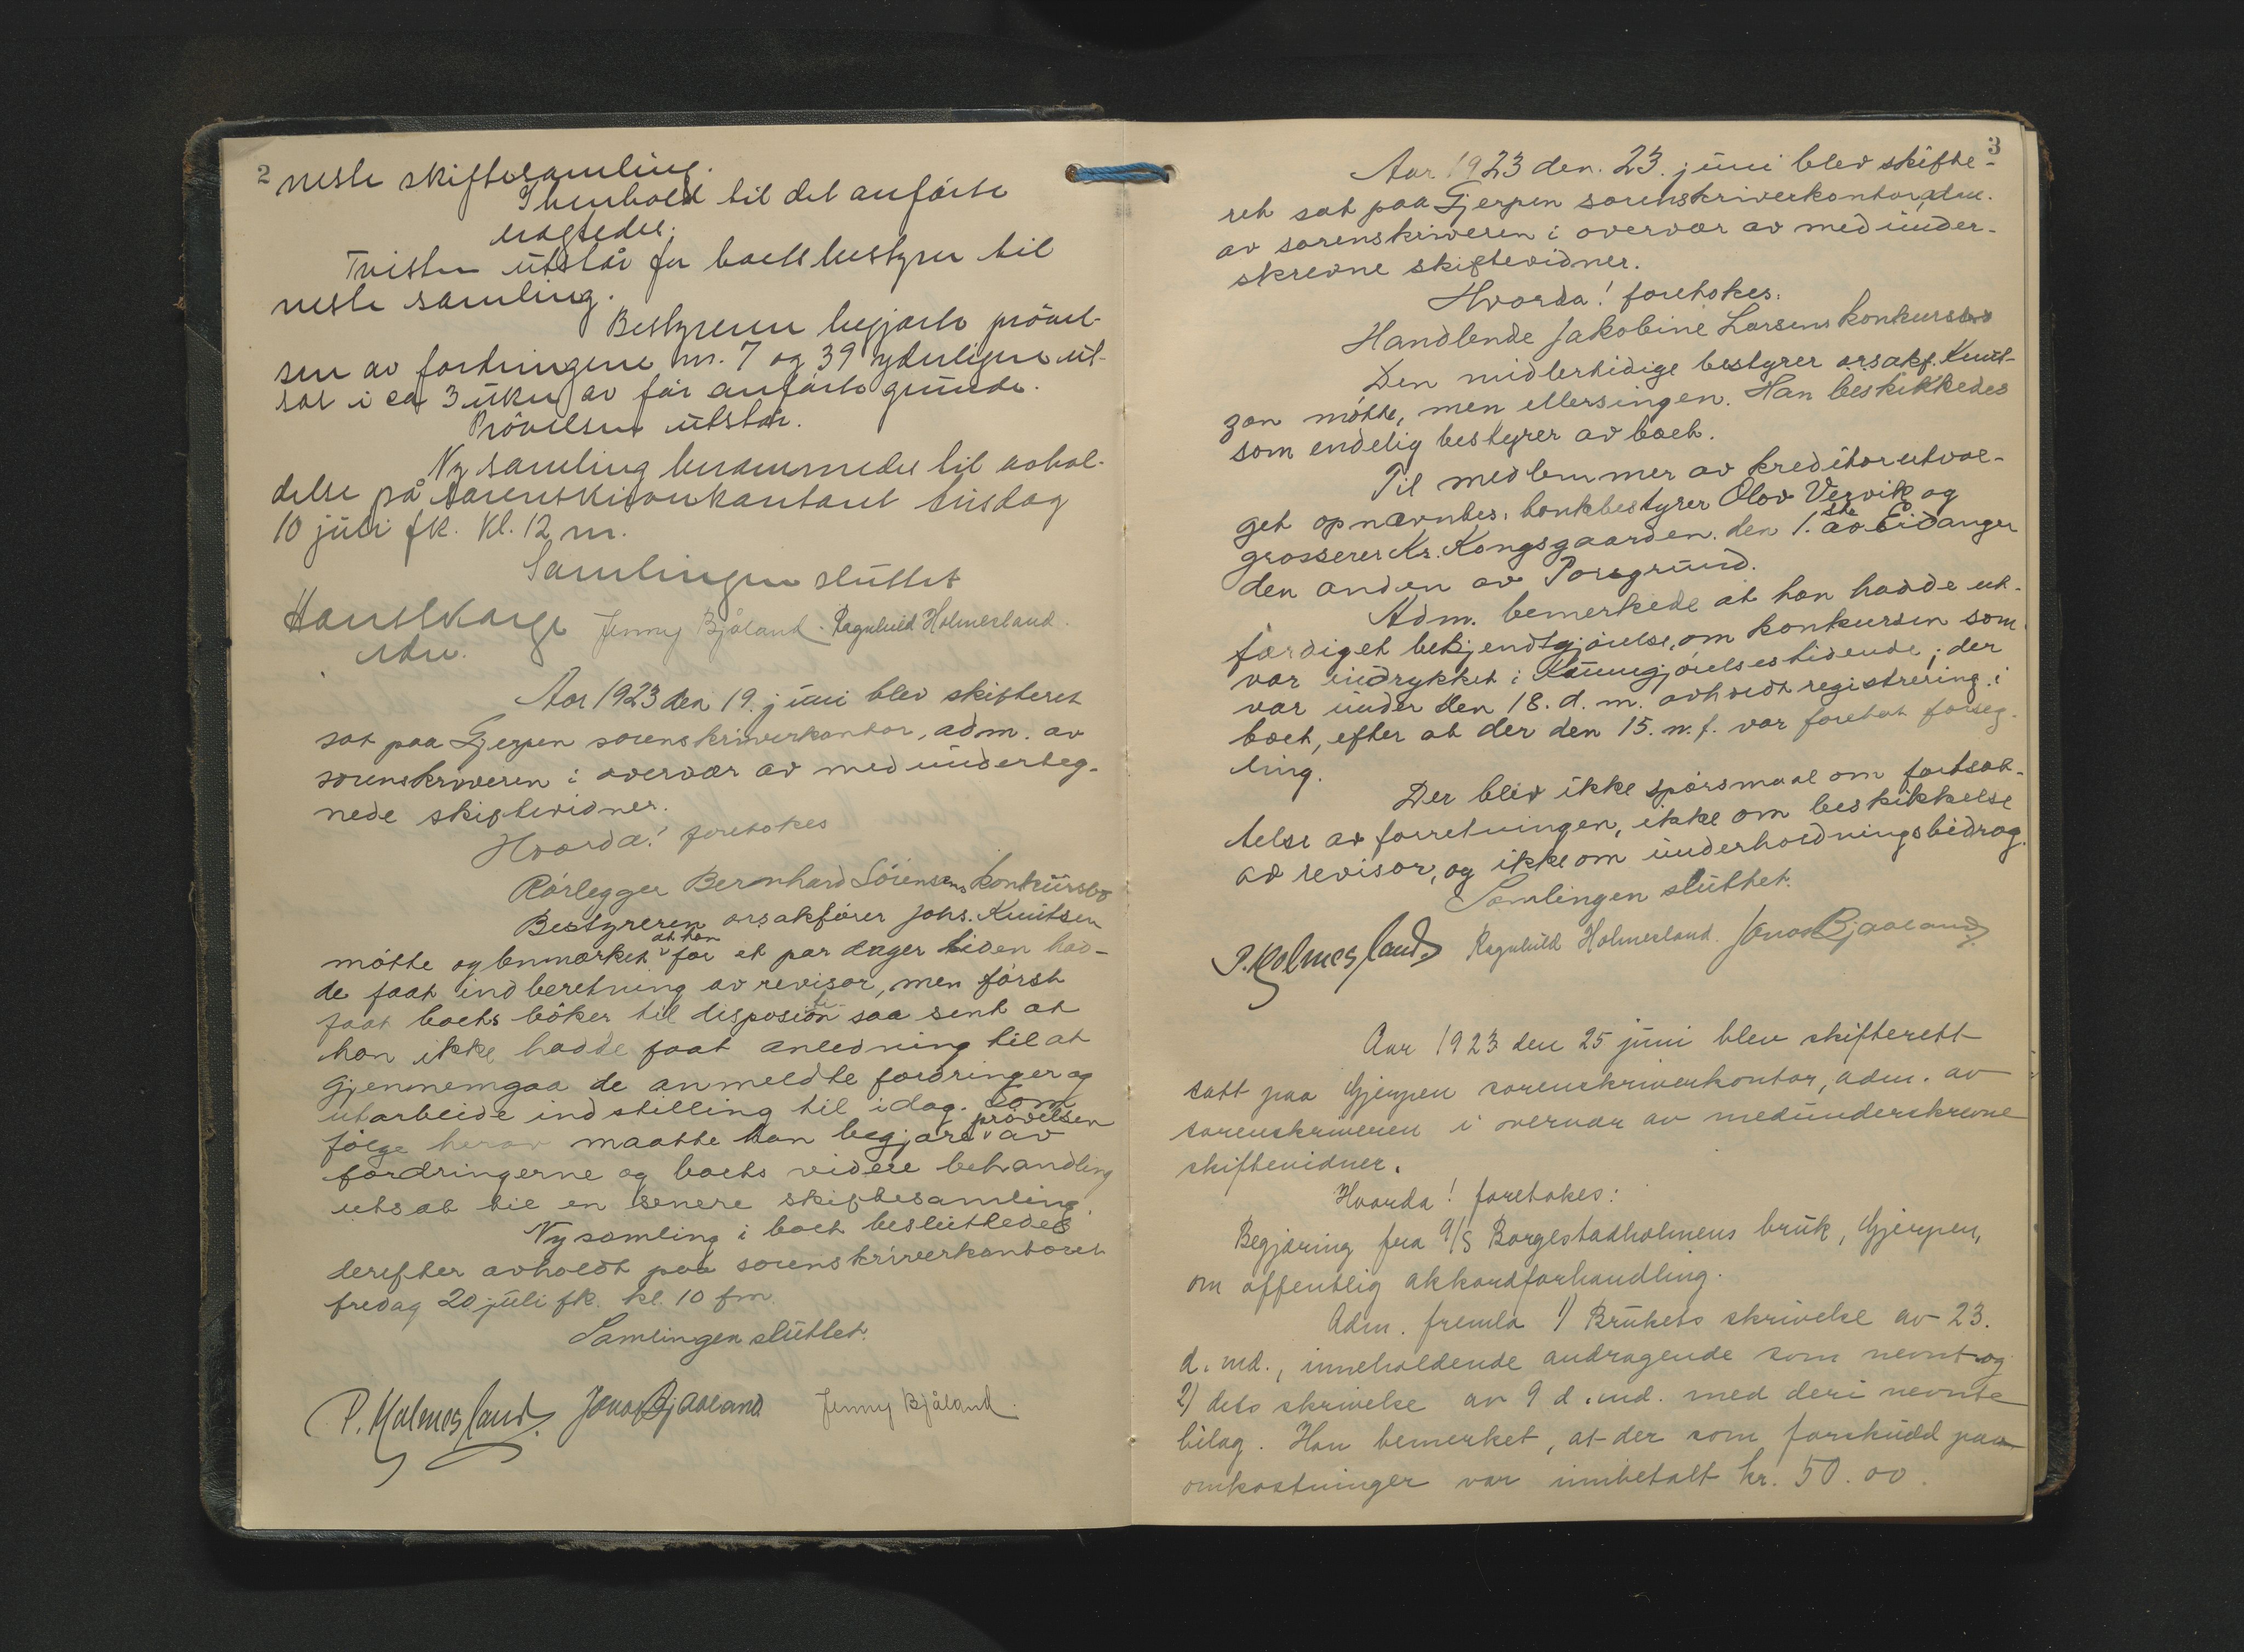 2
neste skiftesamling.
I henhold til det anførte
Tvisten utstår for boets bestyrer til
neste samling.
Bestyreren begjærte prøvel-
sen av fordringene nr. 7 og 39 yderligere ut-
sat i ca 3 uker av før anførte grunde.
Prøvelsen utstår.
Ny samling berammedes til avhol-
delse på sorenskriverkontoret tirsdag
10 juli fk. kl. 12 m.
Samlingen sluttet
Jenny Bjåland. Ragnhild Holmesland.
Aar 1923 den 19. juni blev skifteret
sat paa Gjerpen sorenskriverkontor, adm. av
sorenskriveren i overvær av medunderteg-
nede skiftevidner.
Hvorda! foretokes
Rørlegger Bernhard Sørensens konkursbo
Bestyreren orsakfører Johs. Knutsen
møtte og bemærket at han for et par dager siden had-
de faat indberetning av revisor, men først
faat boets bøker til disposition saa sent at
han ikke hadde faat anledning til at
gjennemgaa de anmeldte fordringer og
utarbeide indstilling til idag. Som
følge herav maatte han begjære prøvelsen av
fordringerne og boets videre behandling
utsat til en senere skiftesamling.
Ny samling i boet besluttedes
derefter avholdt paa sorenskriverkontoret
fredag 20 juli fk. kl. 10 fm.
Samlingen sluttet.
P. Holmesland. Jonas Bjaaland Jenny Bjåland.
3
Aar 1923 den. 23. juni blev skifte-
ret sat paa Gjerpen sorenskriverkontor, adm.
av sorenskriveren i overvær av medunder-
skrevne skiftevidner.
Hvorda! foretokes:
Handlende Jakobine Larsens konkursbo
Den midlertidige bestyrer orsakf. Knut-
zon møtte, men ellers ingen. Han beskikkedes
som endelig bestyrer av boet.
Til medlemmer av kreditorutval-
get opnævntes: bankbestyrer Olov Vervik og
grosserer Kr. Kongsgaarden. den 1.ste av Eidanger
den anden av Porsgrund.
Adm. bemerkede at han hadde ut-
færdiget bekjendtgjørelse om konkursen som
var indrykket i Kunngjørelsestidende; der
var under den 18. d. m. avholdt registrering i
boet, efter at der den 15. n. f. var foretat forseg-
ling.
Der blev ikke spørsmaal om fortsæt-
telse av forretningen, ikke om beskikkelse
av revisor, og ikke om underholdningsbidrag.
Samlingen sluttet.
P. Holmesland. Ragnhild Holmesland. Jonas Bjaaland
Aar 1923 den 25 juni blev skifterett
satt paa Gjerpen sorenskriverkontor, adm. av
sorenskriveren i overvær av medunderskrevne
skiftevidner.
Hvorda! foretokes:
Begjæring fra A/S Borgestadholmens bruk, Gjerpen,
om offentlig akkordforhandling.
Adm. fremla 1) Brukets skrivelse av 23.
d. md., inneholdende andragende som nevnt og
2) dets skrivelse av 9 d. md. med deri nevnte
bilag. Han bemerket, at der som forskudd paa
omkostninger var innbetalt kr. 50.00.